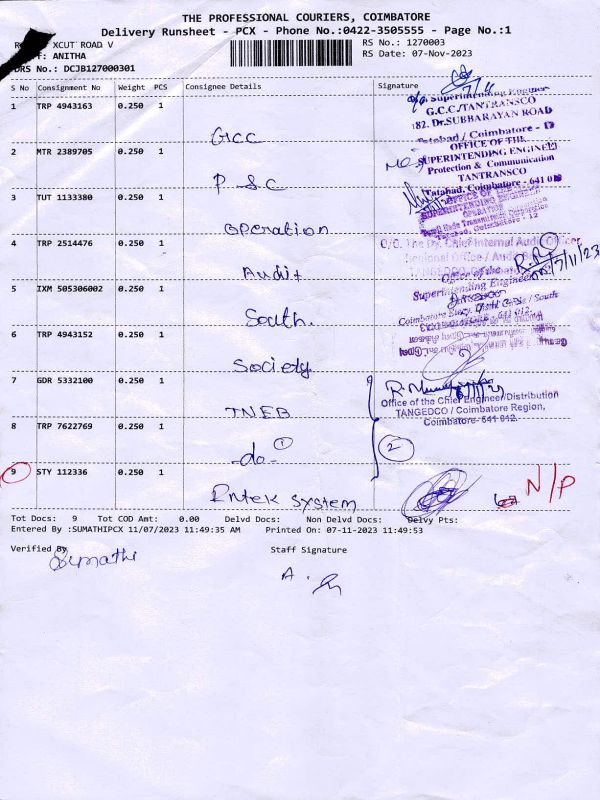 THE PROFESSIONAL COURIERS, COIMBATORE
Delivery Runsheet - PCX - Phone No.:0422-3505555 - Page No.:1
XCUT ROAD V
RS No.: 1270003
: ANITHA
RS Date: 07-Nov-2023
DRS No.: DCJB127000301
S No Consignment No Weight PCS Consignee Details Signature
1 TRP 4943163 0.250 1 GCC
Superintending Engineer
G.C.C./TANTRANSCO
182. Dr.SUBBARAYAN ROAD
Tatabad / Coimbatore - 12
2 MTR 2389705 0.250 1 PSC
OFFICE OF THE
SUPERINTENDING ENGINEER
Protection & Communication
TANTRANSCO
Tatabad, Coimbatore - 641 012
3 TUT 1133380 0.250 1 Operation
OFFICE OF THE
SUPERINTENDING ENGINEER
OPERATION
Tatabad, Coimbatore - 12
4 TRP 2514476 0.250 1 Audit
O/O. The Dy. Chief Internal Audit Officer,
Regional Office / Audit
TANGEDCO
7/11/23
5 IXM 505306002 0.250 1 South.
Office of the
Superintending Engineer
TANGEDCO
Coimbatore Elecy. Distri. Circle / South
Coimbatore - 641 012.
6 TRP 4943152 0.250 1 Society
7 GDR 5332100 0.250 1 TNEB
Office of the Chief Engineer/Distribution
TANGEDCO / Coimbatore Region,
Coimbatore- 641 012.
8 TRP 7622769 0.250 1 -do- 1
2
9 STY 112336 0.250 1 Entek System
N/P
Tot Docs: 9 Tot COD Amt: 0.00 Delvd Docs: Non Delvd Docs: Delvy Pts:
Entered By :SUMATHIPCX 11/07/2023 11:49:35 AM Printed On: 07-11-2023 11:49:53
Verified By Staff Signature
Sumathi